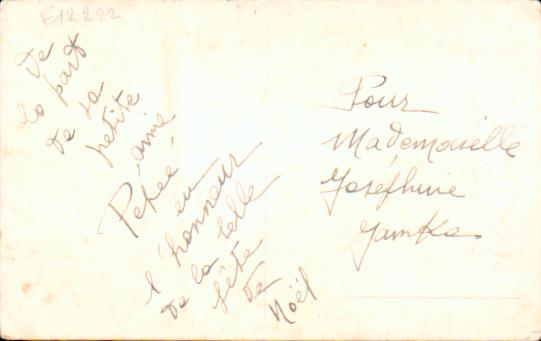 E12222
De
la part
de sa
petite
amie
Pepée,
en
l'honneur
de la belle
fête
de
Noël
Pour
Mademoiselle
Joséphine
Jamka